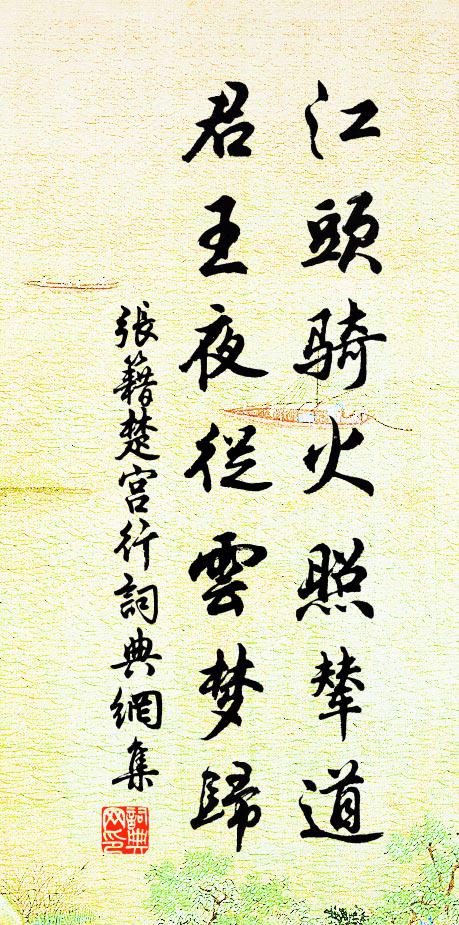 江頭騎火照輦道
君王夜從雲梦歸
張籍楚宫行詞典網集
詞典网印